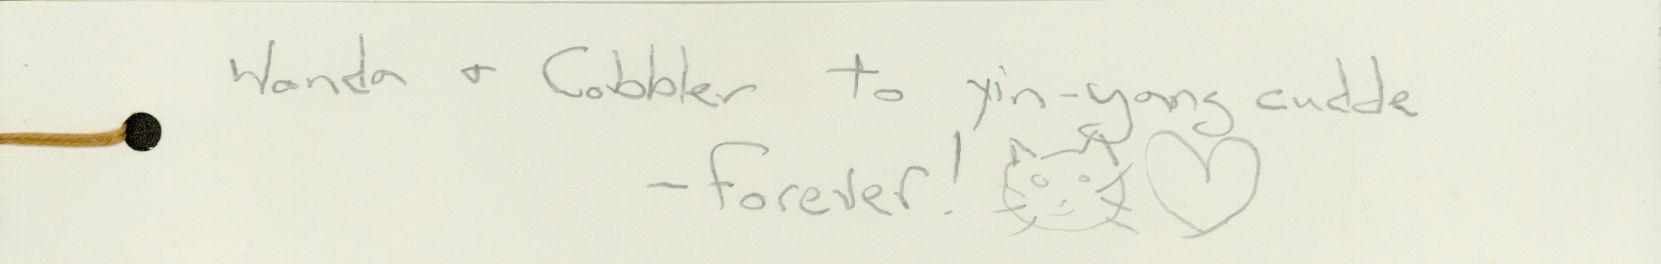 Wanda + Cobbler to yin-yang cudde
- Forever!